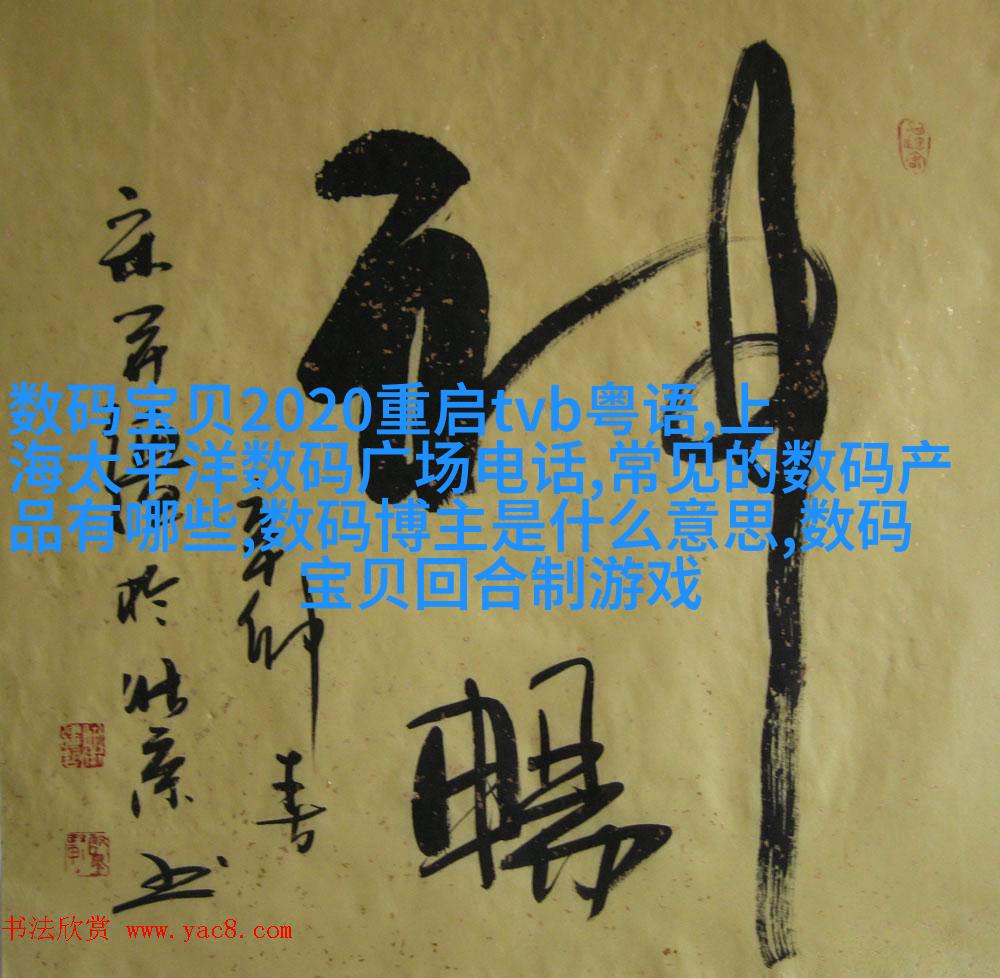 神
暢
数码宝贝2020重启tvb粤语,上
海太平洋数码广场电话,常见的数码产
品有哪些,数码博主是什么意思,数码
宝贝回合制游戏
辛卯春
於北京书
书法欣赏 www.yac8.com